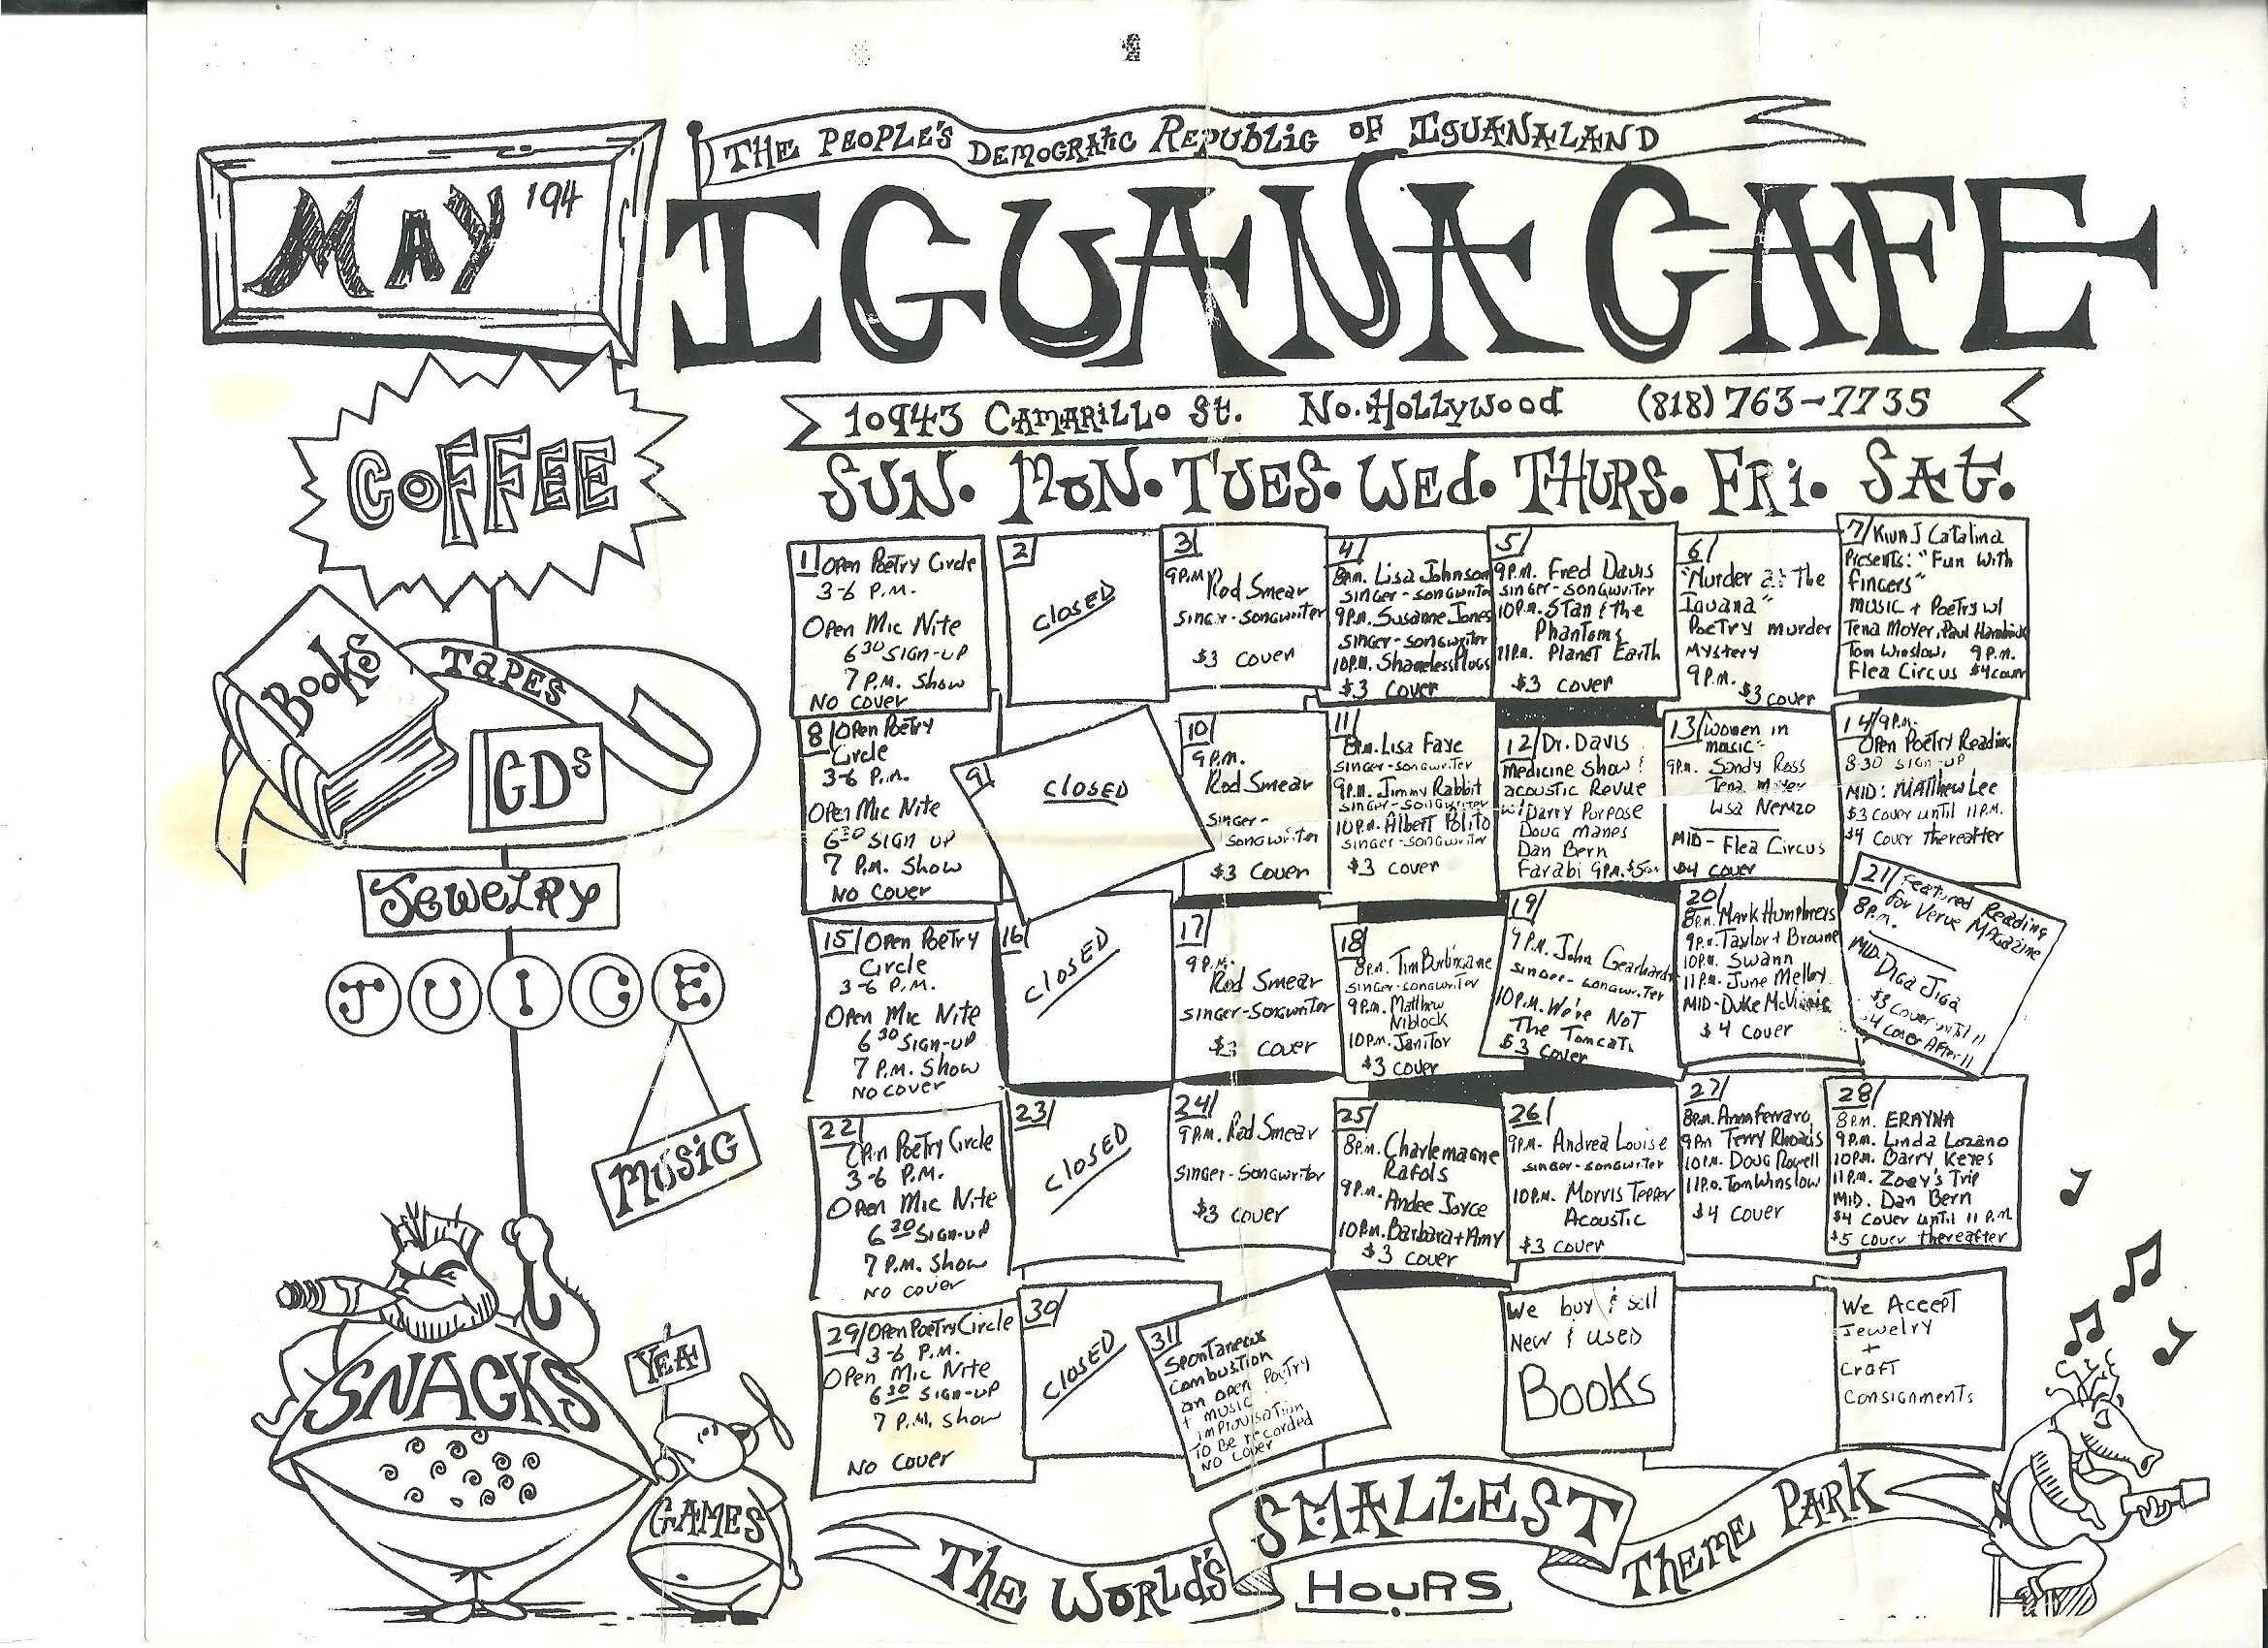 THE PEOPLE'S DEMOCRATIC REPUBLIC OF IGUANALAND
MAY '94
IGUANA CAFE
10943 CAMARILLO ST. NO. HOLLYWOOD (818) 763-7735
COFFEE
BOOKS
TAPES
CDs
JEWELRY
JUICE
MUSIC
SNACKS
YEA!
GAMES
SUN. MON. TUES. WED. THURS. FRI. SAT.
1/ Open Poetry Circle
3-6 P.M.
Open Mic Nite
6 30 SIGN-UP
7 P.M. Show
NO COVER
2/
CLOSED
3/
9 P.M. Rod Smear
SINGER-SONGWRITER
$3 COVER
4/
8 P.M. Lisa Johnson
SINGER-SONGWRITER
9 P.M. Susanne Jones
SINGER-SONGWRITER
10 P.M. Shameless Plugs
$3 COVER
5/
9 P.M. Fred Davis
SINGER-SONGWRITER
10 P.M. Stan & the
Phantoms
11 P.M. Planet Earth
$3 COVER
6/
"Murder at The
Iguana"
Poetry murder
Mystery
9 P.M.
$3 cover
7/ Kwn J Catalina
Presents: "Fun With
Fingers"
MUSIC + Poetry w/
Tena Moyer, Paul
Tom Winslow, 9 P.M.
Flea Circus $4 cover
8/ Open Poetry
Circle
3-6 P.M.
Open Mic Nite
6 30 SIGN UP
7 P.M. Show
NO COVER
9/
CLOSED
10/
9 P.M.
Rod Smear
SINGER-
SONGWRITER
$3 COVER
11/
8 P.M. Lisa Faye
SINGER-SONGWRITER
9 P.M. Jimmy Rabbit
SINGER-SONGWRITER
10 P.M. Albert Polito
SINGER-SONGWRITER
$3 COVER
12/ Dr. Davis
Medicine Show &
acoustic Revue
w/ Darry Purpose
Doug Manes
Dan Bern
Farabi 9 P.M. $5
13/ Women in
music-
9 P.M. Sandy Ross
Tena Moyer
Lisa Nemzo
MID- Flea Circus
$4 COVER
14/ 9 P.M.
Open Poetry Reading
8:30 SIGN-UP
MID: Matthew Lee
$3 Cover until 11 P.M.
$4 Cover thereafter
15/ Open Poetry
Circle
3-6 P.M.
Open Mic Nite
6 30 SIGN-UP
7 P.M. Show
NO COVER
16/
CLOSED
17/
9 P.M.
Rod Smear
SINGER-SONGWRITER
$3 COVER
18/
8 P.M. Tim Burlingame
SINGER-SONGWRITER
9 P.M. Matthew
Niblock
10 P.M. Janitor
$3 COVER
19/
9 P.M. John Gearhardt
SINGER-SONGWRITER
10 P.M. We're NOT
The Tomcats
$3 COVER
20/
8 P.M. Mark Humphreys
9 P.M. Taylor + Browne
10 P.M. Swann
11 P.M. June Melby
MID- Duke
$4 COVER
21/ Featured Reading
For Verve Magazine
8 P.M.
MID: Diga Jiga
$3 Cover until 11
$4 Cover After 11
22/
Open Poetry Circle
3-6 P.M.
Open Mic Nite
6 30 SIGN-UP
7 P.M. Show
NO COVER
23/
CLOSED
24/
9 P.M. Rod Smear
SINGER-SONGWRITER
$3 COVER
25/
8 P.M. Charlemagne
Rafols
9 P.M. Andee Joyce
10 P.M. Barbara + Amy
$3 COVER
26/
9 P.M. Andrea Louise
SINGER-SONGWRITER
10 P.M. Morris Tepper
Acoustic
$3 COVER
27/
8 P.M. Anna Ferraro,
9 P.M. Terry Rhoads
10 P.M. Doug Rowell
11 P.M. Tom Winslow
$4 COVER
28/
8 P.M. ERAYNA
9 P.M. Linda Lozano
10 P.M. Barry Keyes
11 P.M. Zoey's Trip
MID. Dan Bern
$4 COVER until 11 P.M.
$5 cover thereafter
29/ Open Poetry Circle
3-6 P.M.
Open Mic Nite
6 30 SIGN-UP
7 P.M. Show
NO COVER
30/
CLOSED
31/
Spontaneous
Combustion
an open Poetry
+ music
improvisation
To Be recorded
NO COVER
We buy & sell
New & used
Books
We Accept
Jewelry
+
Craft
Consignments
THE WORLD'S SMALLEST THEME PARK
HOURS